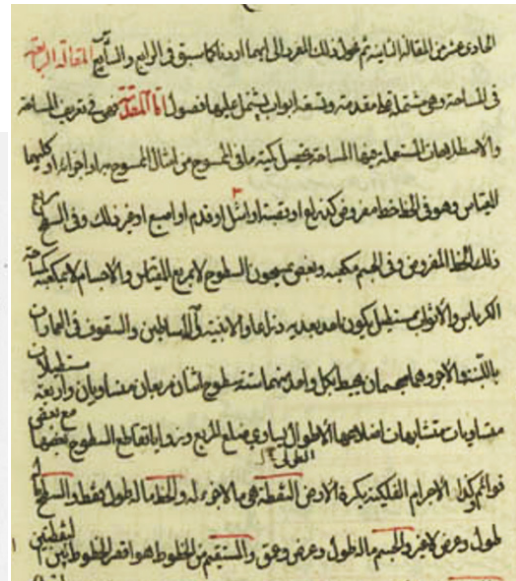 الحادى عشر من المقالة الثانية ثم نحول ذلك المفرد الى ايهما اردنا كما سبق فى الرابع والسابع المقالة الرابعة
فى المساحة وهى مشتملة على مقدمة وتسعة ابواب يشتمل عليها فصول اما المقدمة فهى فى تعريف المساحة
والاصطلاحات المستعملة فيها المساحة تحصيل كمية ما فى الممسوح من امثال الممسوح به او اجزاءه او كليهما
المقياس وهو فى الخط خط مفروض كذراع او قصبة او اشل او قدم او اصبع او غير ذلك وفى السطح مربع
ذلك الخط المفروض وفى الجسم مكعبه وبعض يمسحون السطوح لا بمربع المقياس والاجسام لا بمكعبه كمساحة
الكرباس والاثواب بمستطيل يكون احد بعديه ذراعا والابنية والاساطين والسقوف فى العمارات
باللبنة والاجر وهما مجسمان يحيط بكل واحد منهما ستة سطوح اثنان مربعان متساويان واربعة مستطيلات
متساويات متشابهات اضلاعها الاطول يساوى ضلع المربع وزوايا تقاطع السطوح بعضها مع بعض
الطول
قوائم وكذا الاجرام الفلكية بكرة الارض النقطة هى ما لا جزء له والخط ما له طول فقط والسطح ما له
طول وعرض لا غير والجسم ما له طول وعرض وعمق والمستقيم من الخطوط هو اقصر الخطوط بين النقطتين